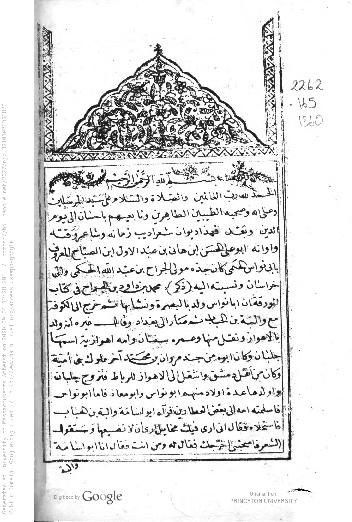 2262
.165
1860
بسم الله الرحمن الرحيم
الحمد لله رب العالمين والصلاة والسلام على سيد المرسلين
وعلى اله وصحبه الطيبين الطاهرين وتابعيهم باحسان الى يوم
الدين وبعد فهذا ديوان شعر اديب زمانه وشاعر وقته
واوانه ابو علي الحسن ابن هاني بن عبد الاول ابن الصباح المعروف
بابي نواس الحكمي كان جده مولى الجراح بن عبد الله الحكمي والي
خراسان ونسبته اليه (ذكر) محمد بن داود بن الجراح في كتاب
الورقة ان ابا نواس ولد بالبصرة ونشا بها ثم خرج الى الكوفة
مع والبة بن الحباب ثم صار الى بغداد وقال غيره انه ولد
بالاهواز ونقل منها وعمره سنتان وامه اهوازية اسمها
جلبان وكان ابوه من جند مروان بن محمد آخر ملوك بني امية
وكان من اهل دمشق وانتقل الى الاهواز للرباط فتزوج جلبان
واولدها عدة اولاد منهم ابو نواس وابو معاذ فاما ابو نواس
فاسلمته امه الى بعض العطارين فرآه ابو اسامة والبة بن الحباب
فاستحلاه فقال اني ارى فيك مخايل ارى ان لا تضيعها وستقول
الشعر فاصحبني اخرجك فقال له ومن انت فقال انا ابو اسامة
والبة
Digitized by Google
Original from
PRINCETON UNIVERSITY